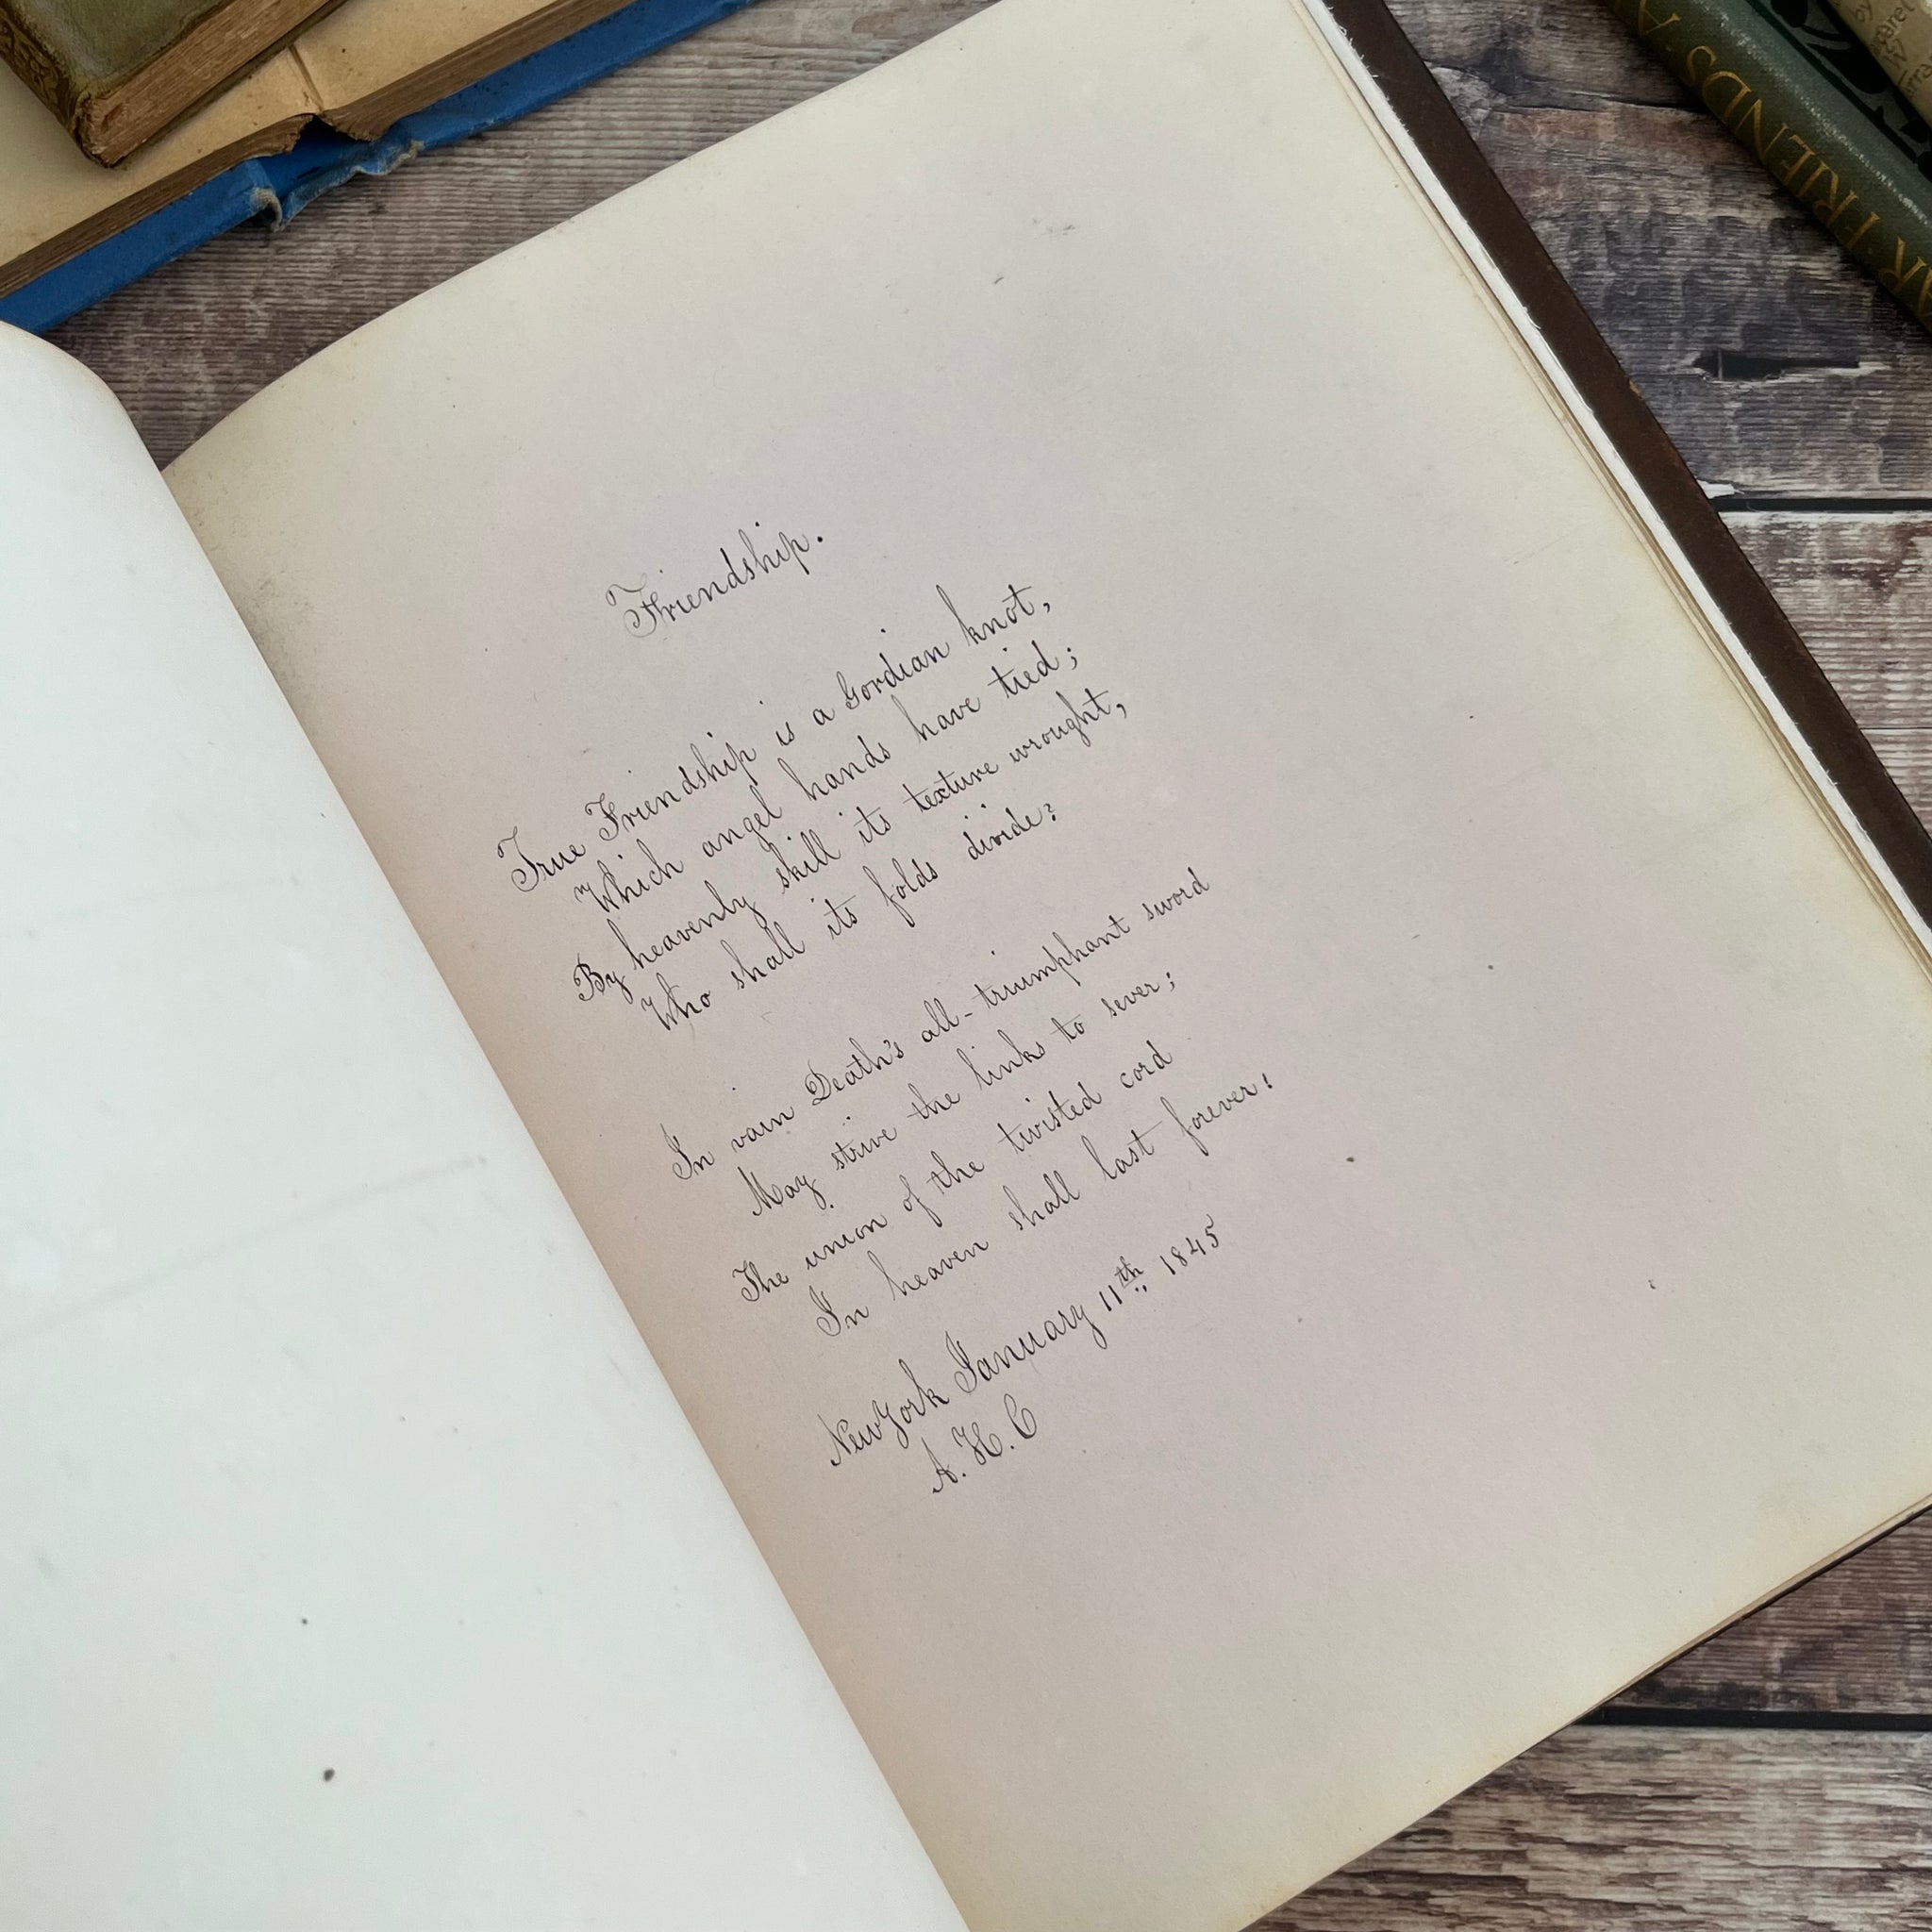 Friendship.
True Friendship is a Gordian knot,
Which angel hands have tied;
By heavenly skill its texture wrought,
Who shall its folds divide?
In vain Death's all-triumphant sword
May strive the links to sever;
The union of the twisted cord
In heaven shall last forever!
New York January 11th 1845
A. H. C
FRIENDS